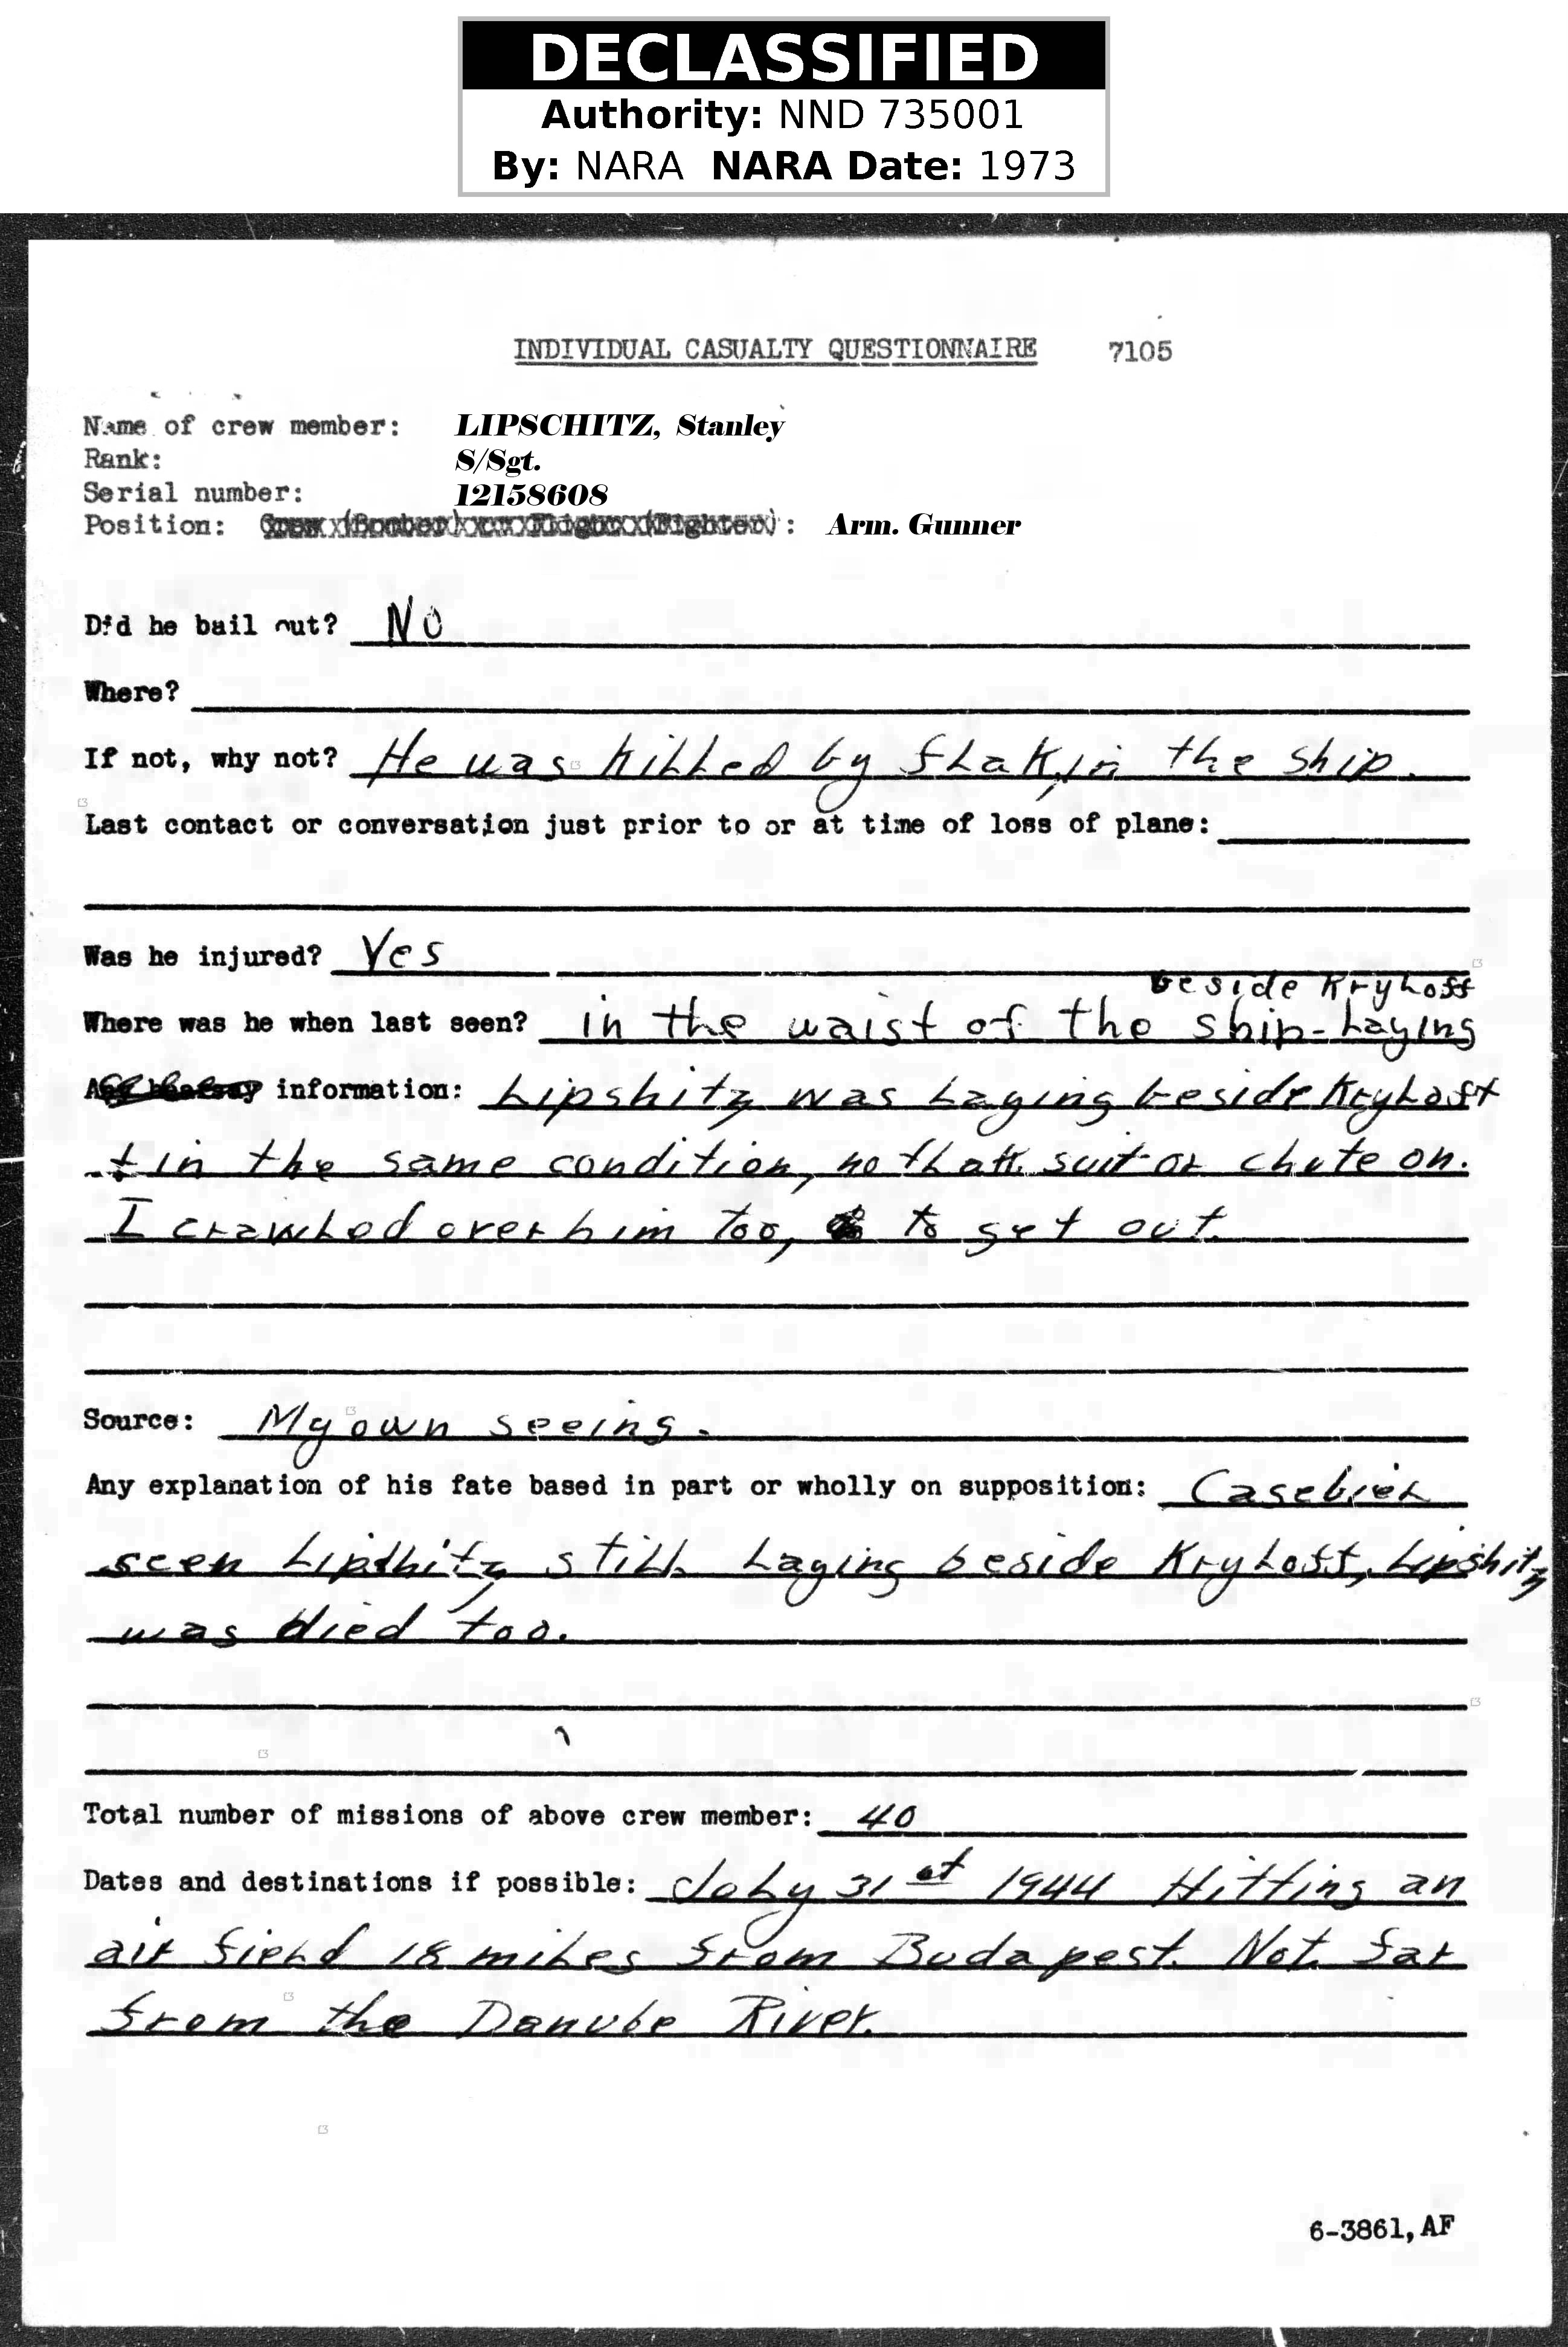 DECLASSIFIED
Authority: NND 735001
By: NARA NARA Date: 1973
INDIVIDUAL CASUALTY QUESTIONNAIRE 7105
Name of crew member: LIPSCHITZ, Stanley
Rank: S/Sgt.
Serial number: 12158608
Position: Crew (Bomber) Flight (Fighter): Arm. Gunner
Did he bail out? No
Where?
If not, why not? He was killed by flak, in the ship.
Last contact or conversation just prior to or at time of loss of plane:
Was he injured? Yes
beside Kryloff
Where was he when last seen? in the waist of the ship-laying
Any hearsay information: Lipshitz was laying beside Kryloff
+ in the same condition, no flak suit or chute on.
I crawled over him too, to get out.
Source: My own seeing.
Any explanation of his fate based in part or wholly on supposition: Casebier
seen Lipshitz still laying beside Kryloff, Lipshitz
was died too.
Total number of missions of above crew member: 40
Dates and destinations if possible: July 31st 1944 Hitting an
air field 18 miles from Budapest. Not far
from the Danube River.
6-3861, AF